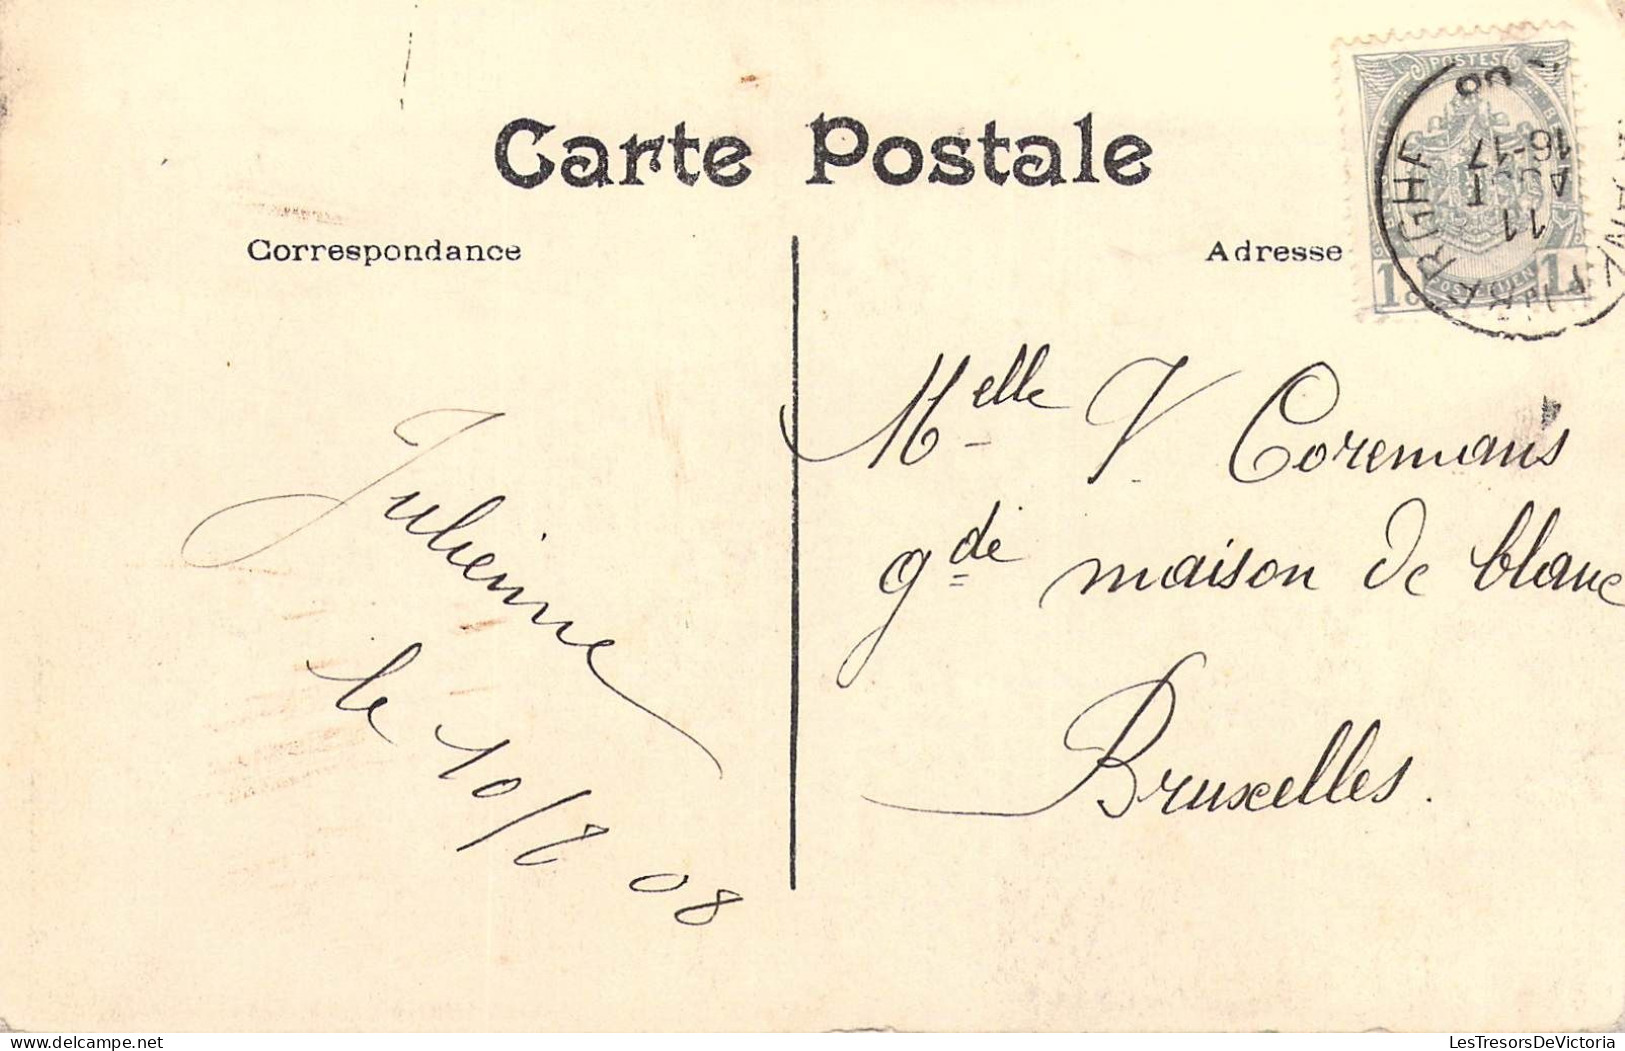 Carte Postale
Correspondance
Adresse
POSTES
1c 1c
11
AOUT
16-17
08
Melle V. Coremans
gde maison de blanc
Bruxelles.
Julienne
le 10/8 08
LesTresorsDeVictoria